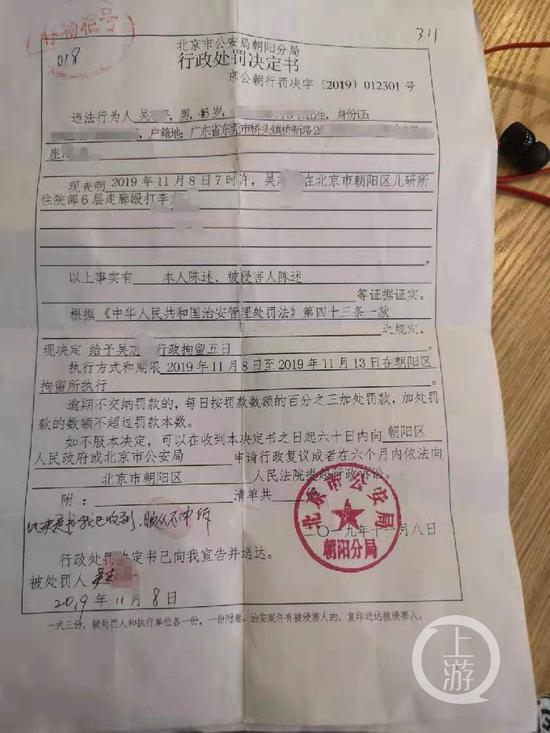 018
311
北京市公安局朝阳分局
行政处罚决定书
京公朝行罚决字〔2019〕012301 号
违法行为人 吴 男, 46岁, 出生, 身份证
户籍地: 广东省东莞市桥头镇桥新路2
座
现查明 2019年11月8日7时许, 吴 在北京市朝阳区儿研所
住院部6层走廊殴打李
以上事实有 本人陈述、被侵害人陈述
等证据证实。
根据《中华人民共和国治安管理处罚法》第四十三条一款
之规定,
现决定 给予吴 行政拘留五日
执行方式和期限 2019年11月8日至2019年11月13日在朝阳区
拘留所执行
逾期不交纳罚款的, 每日按罚款数额的百分之三加处罚款, 加处罚
款的数额不超过罚款本数。
如不服本决定, 可以在收到本决定书之日起六十日内向 朝阳区
人民政府或北京市公安局 申请行政复议或者在六个月内依法向
北京市朝阳区 人民法院提起行政诉讼。
附: 清单共
北京市公安局
朝阳分局
二〇一九年十一月八日
行政处罚决定书已向我宣告并送达。
被处罚人 吴
2019年11月8日
一式三份, 被处罚人和执行单位各一份, 一份附卷。治安案件有被侵害人的, 复印送达被侵害人。
上游